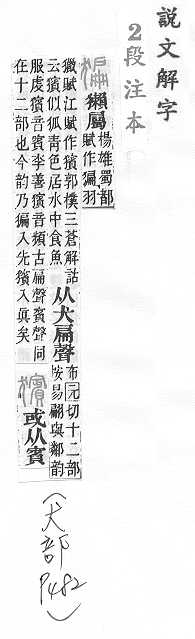 說文解字
2段注本
猵
獺屬
楊雄蜀都
賦作猵羽
獵賦江賦作獱郭樸三蒼解詁
云獱似狐青色居水中食魚
服虔獱音賓李善獱音頻古扁聲賓聲同
在十二部也今韵乃猵入先獱入眞矣
从犬扁聲
布元切十二部
按易翩與鄰韵
獱
或从賓
(犬部 P482)